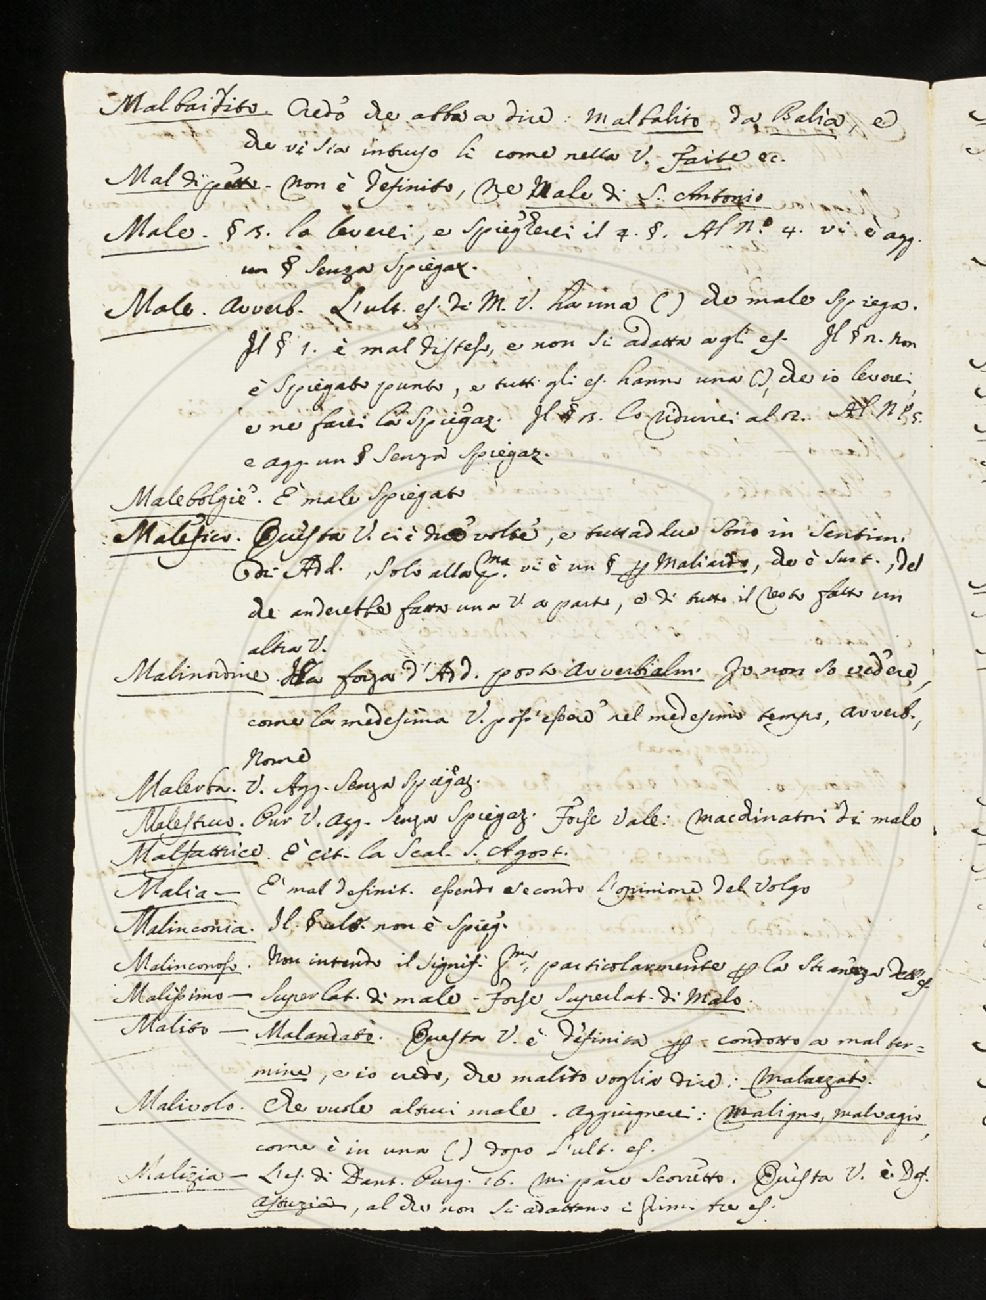 Malbaidito. Credo che abbia a dire: Malbalito da Balia, e
che vi sia intruso lì come nella V. Faite ec.
Mal di petto. Non è definito, Ne Male di S. Antonio
Male. § 3. lo leverei, e spiegherei il 2. §. Al N.º 4. vi è agg.
un § senza spiegaz.
Male. Avverb. L'ult. es. di M. V. ha una ( ) che male spiega.
Il § 1. è mal disteso, e non si adatta agli es. Il § 2. non
è spiegato punto, e tutti gli es. hanno una ( ), che io leverei,
e ne farei la spiegaz. Il § 3. lo ridurrei al 2. Al N.º 5.
e agg. un § senza spiegaz.
Malebolgie. È male spiegato
Malefico. Questa V. ci è due volte, e tuttadue sono in sentim.
di Add., solo alla p.ma vi è un § p Maliardo, che è Sust., del
che anderebbe fatta una V. a parte, e di tutto il resto fatto un
altra V.
Malinordine. Ha forza d'Add. posto avverbialm. Io non so vedere,
come la medesima V. poss'essere nel medesimo tempo, avverb.,
Nome
Malerba. V. Agg. senza spiegaz.
Malestruo. Pur V. agg. senza spiegaz. Forse vale: macchinatori di male.
Malfattrice. È cit. la Scal. S. Agost.
Malia — È mal definit. essendo secondo l'opinione del Volgo
Malinconia. Il § ult. non è spieg.
Malinconoso. Non intendo il signif. p.mo, particolarmente p la stranezza es.
Malissimo — Superlat. di male. Forse Superlat. di Malo.
Malito — Malandato. Questa V. è definita p condotto a mal ter=
mine, e io credo, che malito voglia dire: Malazzato.
Malivolo. Che vuole altrui male. aggiugnerei: Maligno, malvagio,
come è in una ( ) dopo l'ult. es.
Malizia — L'es. di Dant. Purg. 16. mi pare scorretto. Questa V. è Def.
Astuzia, al che non si adattano i prim. tre es.